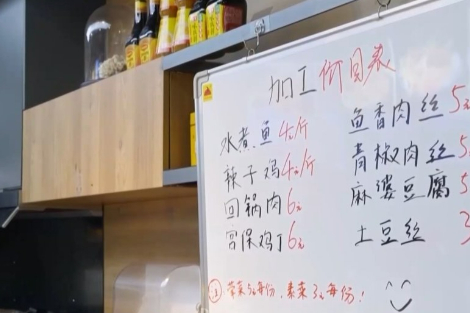 加工价目表
水煮鱼 4元/斤
辣子鸡 4元/斤
回锅肉 6元
宫保鸡丁 6元
鱼香肉丝 5元
青椒肉丝 5
麻婆豆腐 5
土豆丝 3
① 荤菜5元每份，素菜3元每份！